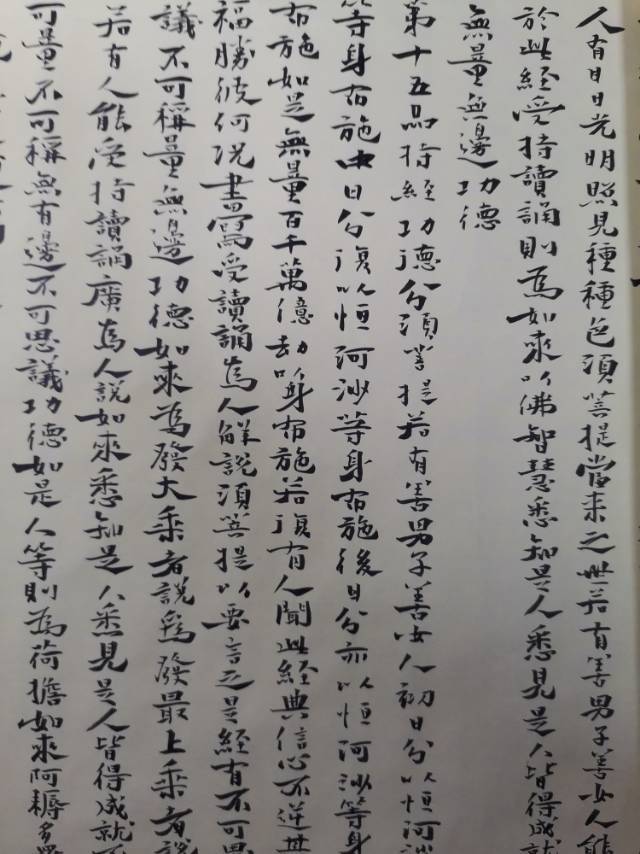 人有目日光明照見種種色須菩提當來之世若有善男子善女人能
於此經受持讀誦則為如來以佛智慧悉知是人悉見是人皆得成就
無量無邊功德
第十五品持經功德分須菩提若有善男子善女人初日分以恒河沙
等身布施中日分復以恒河沙等身布施後日分亦以恒河沙等身
布施如是無量百千萬億劫以身布施若復有人聞此經典信心不逆其
福勝彼何況書寫受讀誦為人解說須菩提以要言之是經有不可思
議不可稱量無邊功德如來為發大乘者說為發最上乘者說
若有人能受持讀誦廣為人說如來悉知是人悉見是人皆得成就不
可量不可稱無有邊不可思議功德如是人等則為荷擔如來阿耨多羅